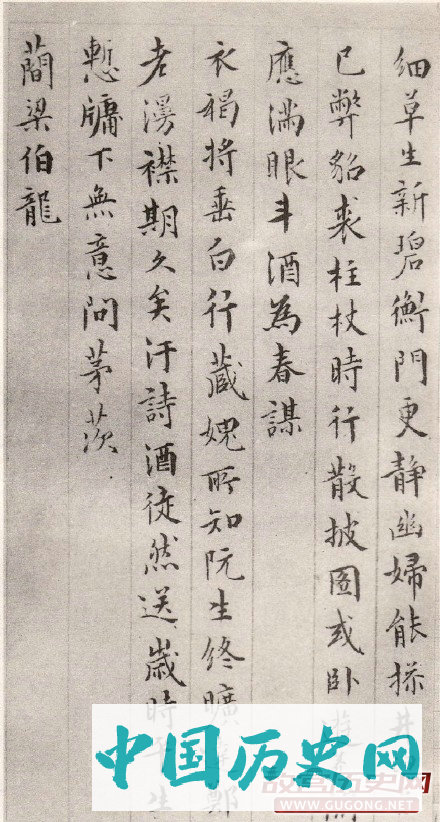 細草生新碧衡門更靜幽婦能操井
已弊貂裘柱杖時行散披圖或卧遊
應滿眼斗酒為春謀
衣褐將垂白行藏媿所知阮生終曠鄭
老漫襟期久矣汙詩酒徒然送歲時平生
慙牖下無意問茅茨
蕳梁伯龍
中国历史网
故宫历史网
WWW.GUGONG.NET